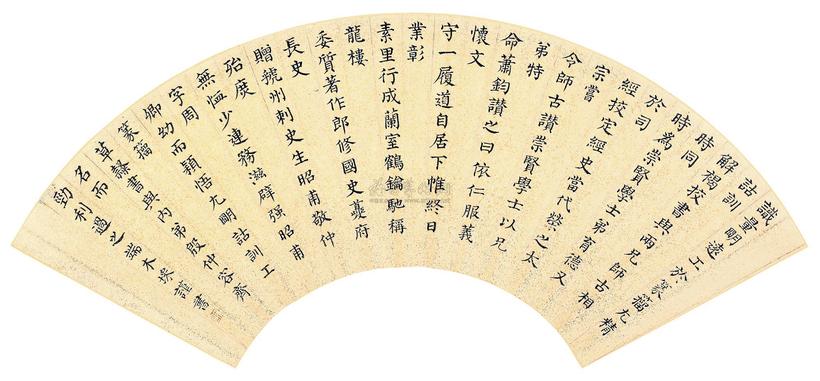 識量明遠工於篆籀尤精
詁訓
解褐挍書與兩兄師古相
時同
時為崇賢學士弟育德又
於司
經挍定經史當代榮之太
宗嘗
令師古讃崇賢學士以兄
弟特
命蕭鈞讃之曰依仁服義
懷文
守一履道自居下惟終日
業彰
素里行成蘭室鶴鑰馳稱
龍樓
委質著作郎修國史夔府
長史
贈虢州刺史生昭甫敬仲
殆庶
無恤少連務滋辟强昭甫
字周
卿幼而穎悟尤明詁訓工
篆籀
草隸書與內弟殷仲容齊
名而
勁利過之端木埰謹書